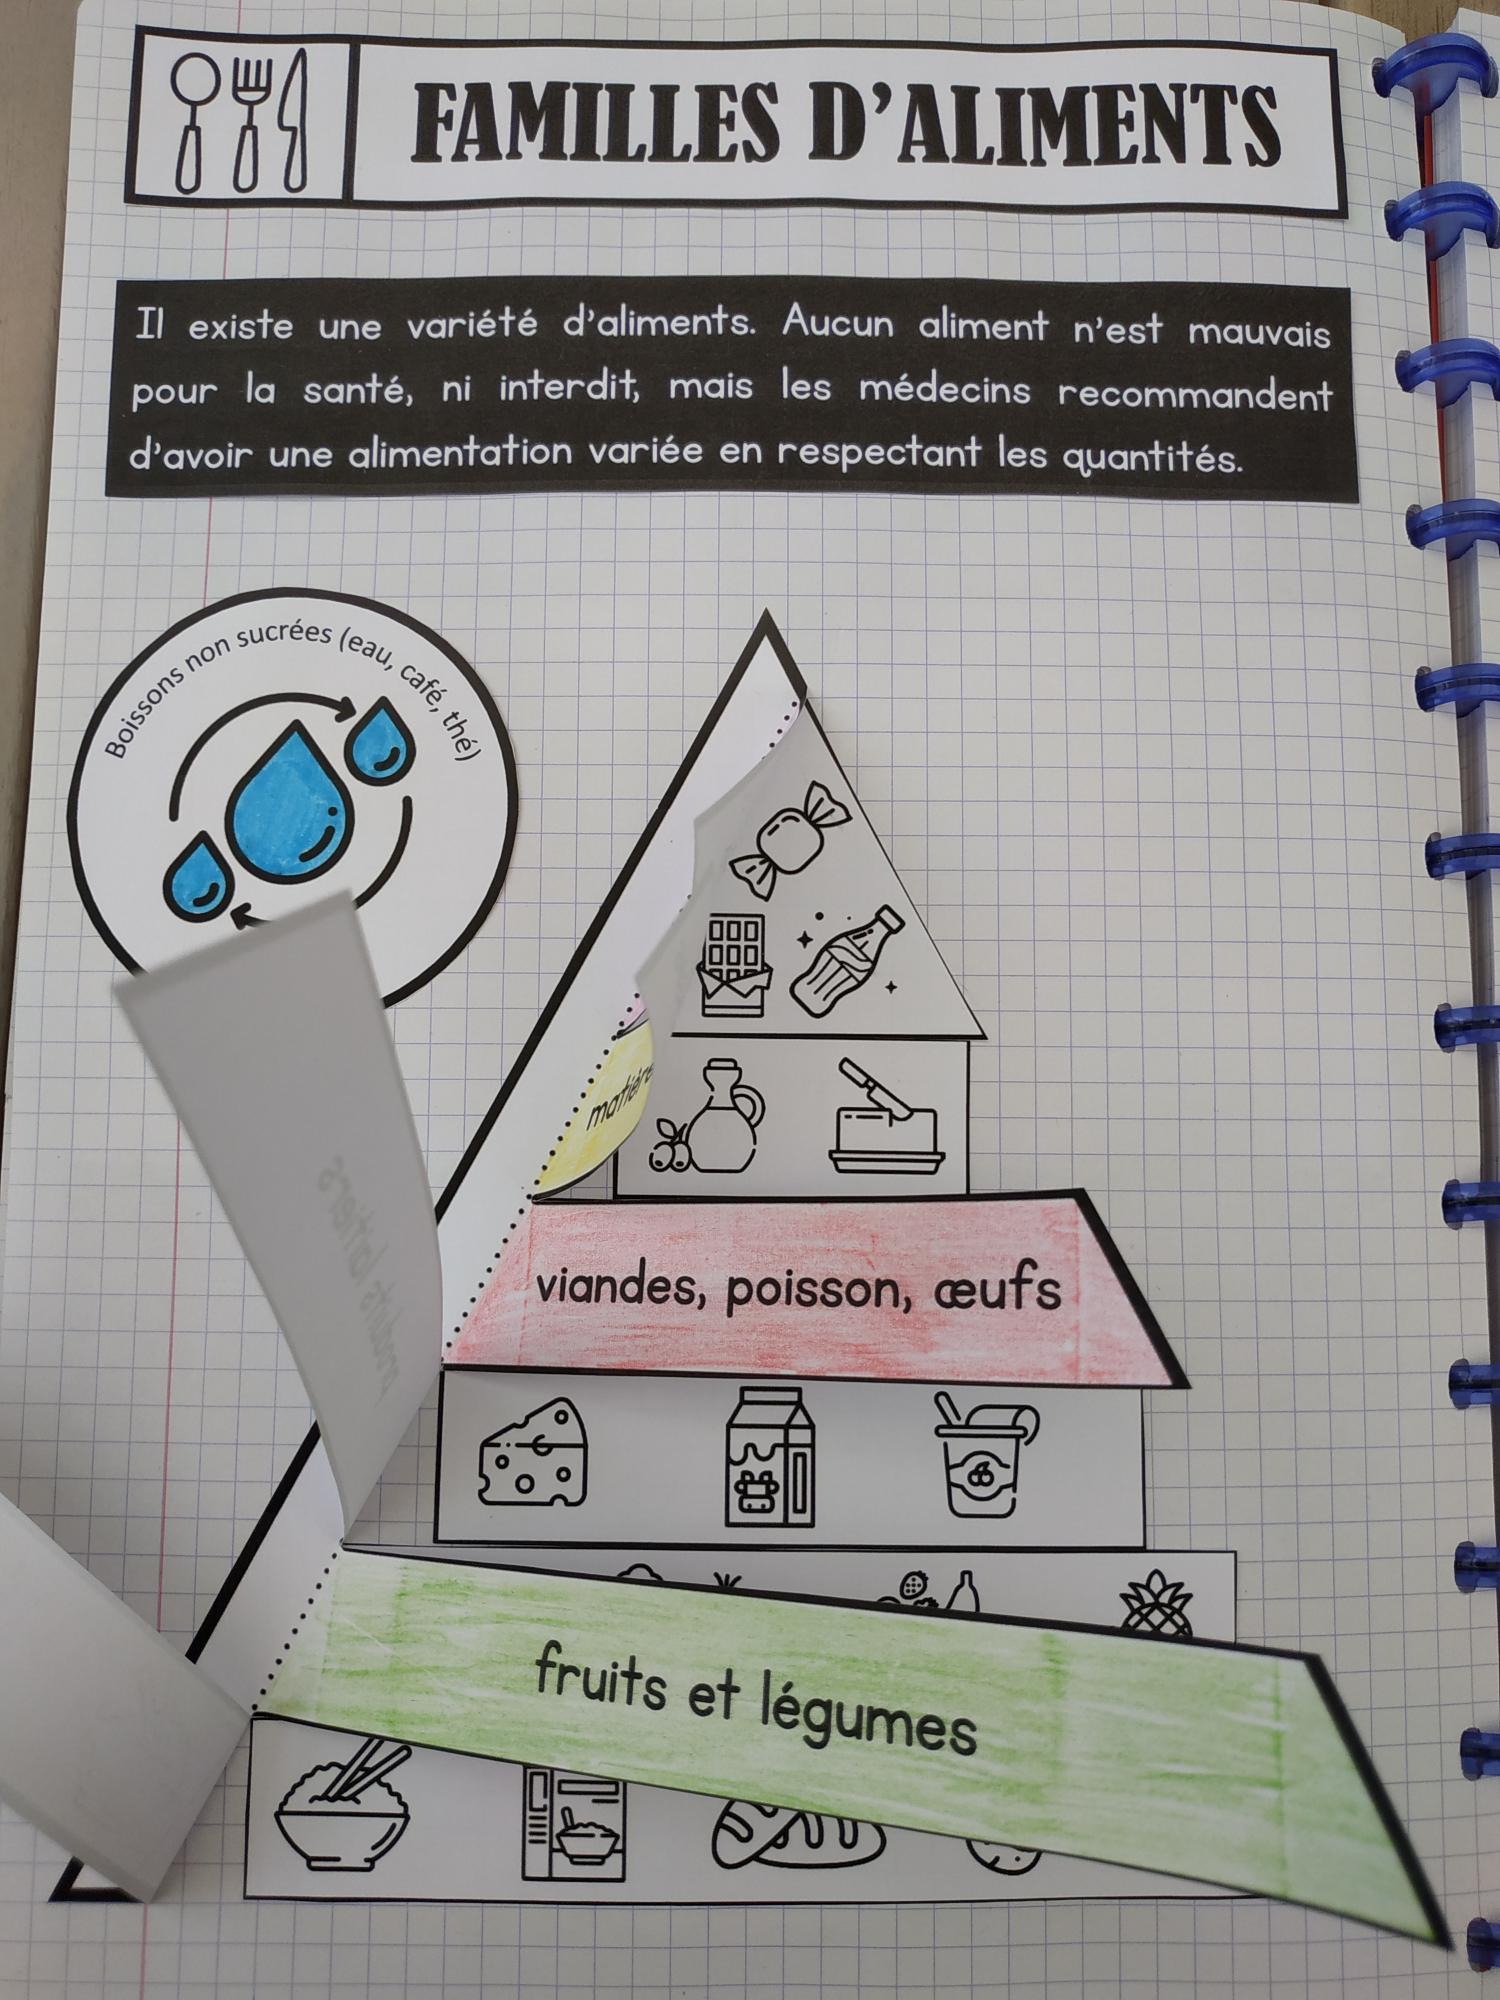 FAMILLES D'ALIMENTS
Il existe une variété d'aliments. Aucun aliment n'est mauvais
pour la santé, ni interdit, mais les médecins recommandent
d'avoir une alimentation variée en respectant les quantités.
Boissons non sucrées (eau, café, thé)
matière
viandes, poisson, œufs
produits laitiers
fruits et légumes